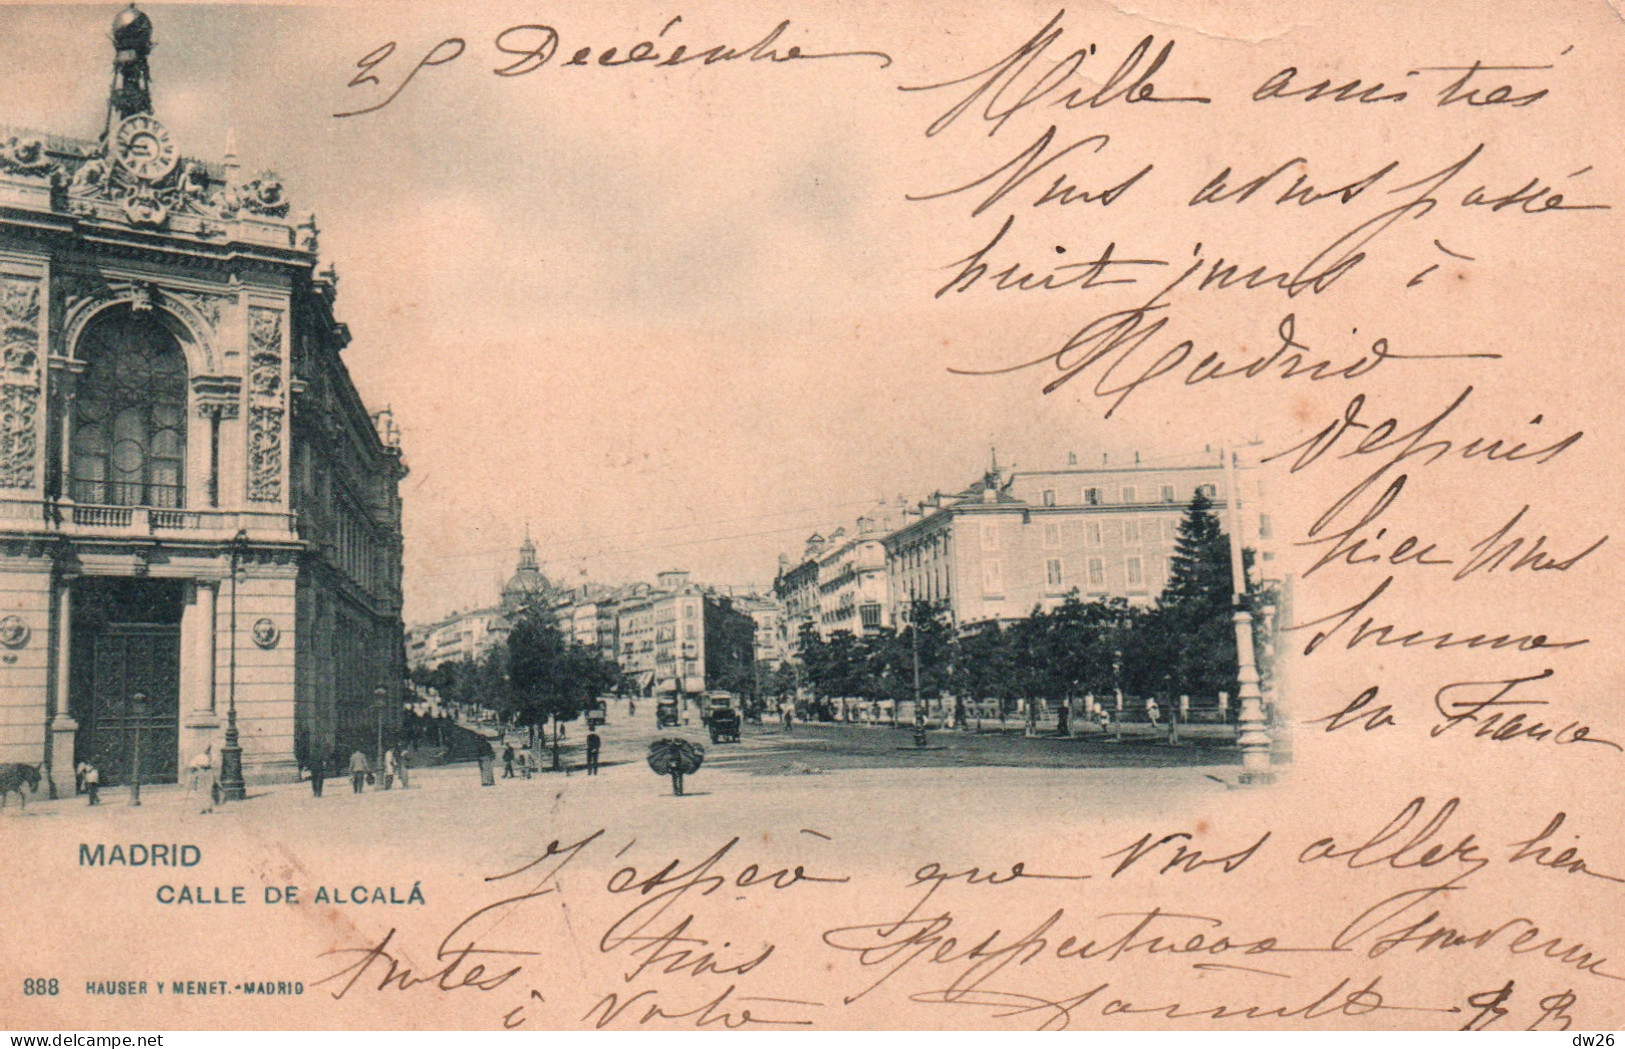 29 Décembre
Mille amitiés
Nous avons passé
huit jours à
Madrid
depuis
hier nous
sommes
en France
J'espère que vous allez bien
toutes trois Respectueux Souvenir
à votre famille BB
MADRID
CALLE DE ALCALÁ
888 HAUSER Y MENET.-MADRID
dw26